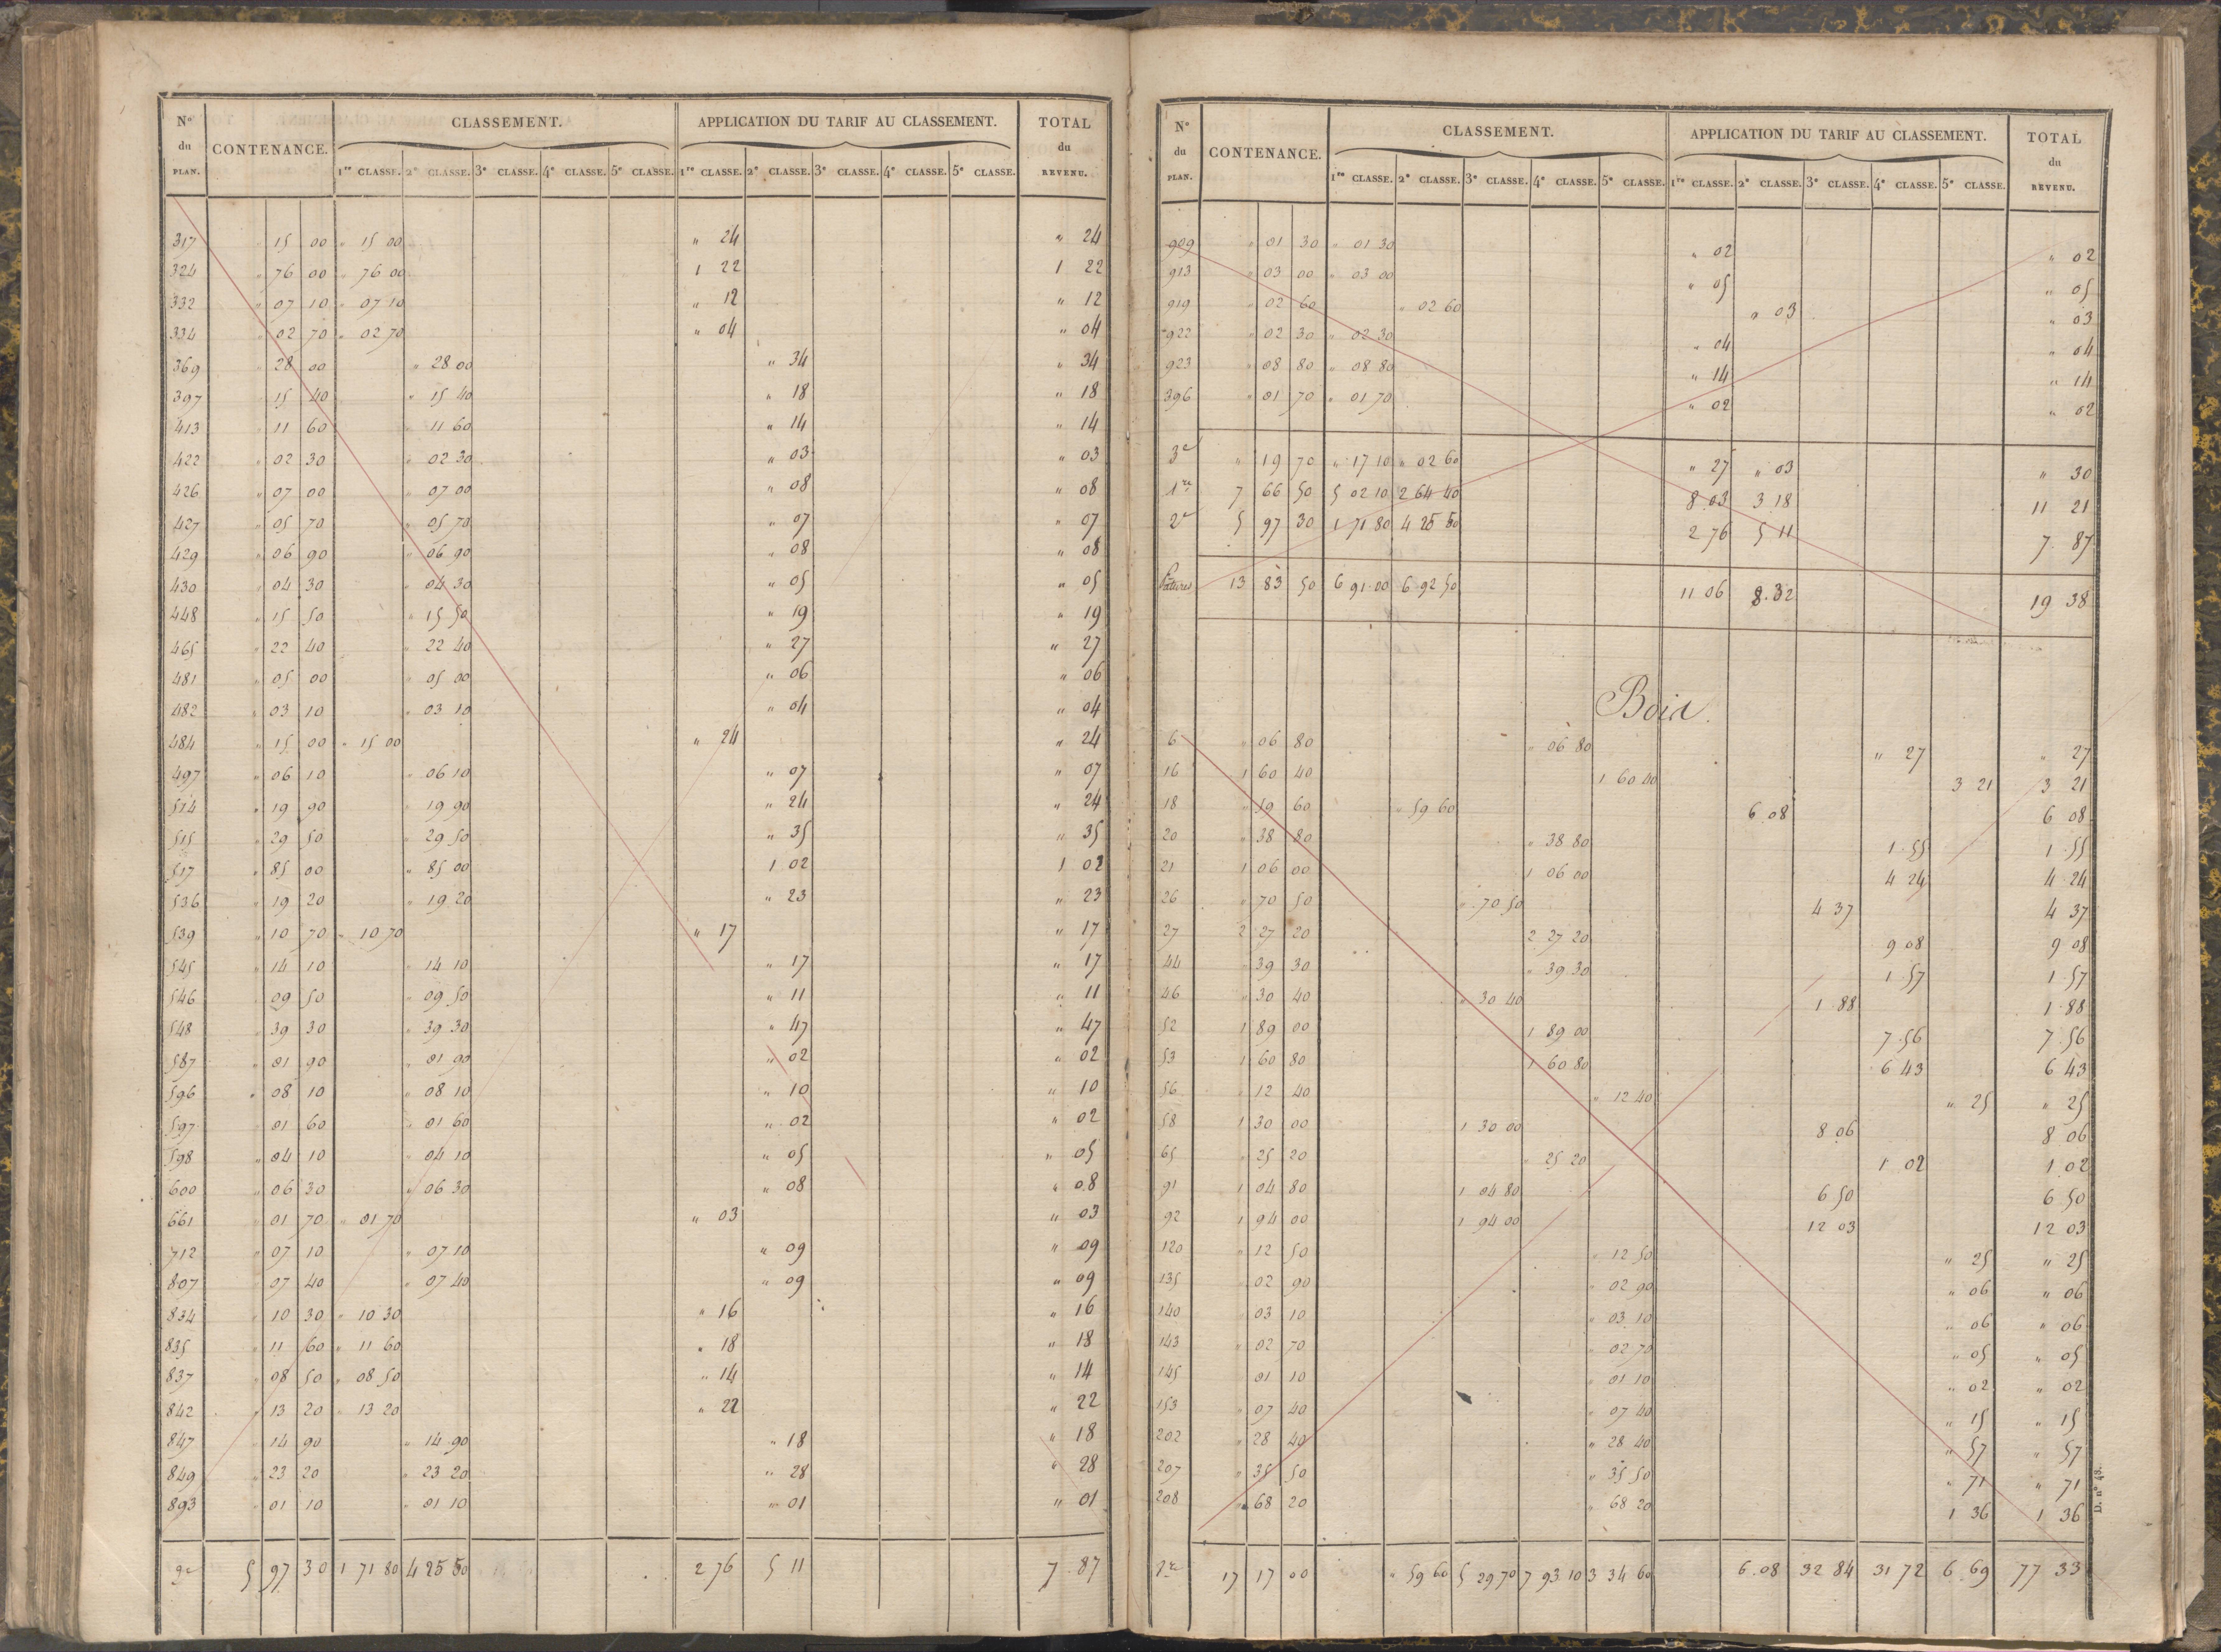 N° du PLAN. CONTENANCE. CLASSEMENT. APPLICATION DU TARIF AU CLASSEMENT. TOTAL du REVENU.
1re CLASSE. 2e CLASSE. 3e CLASSE. 4e CLASSE. 5e CLASSE. 1re CLASSE. 2e CLASSE. 3e CLASSE. 4e CLASSE. 5e CLASSE.
317 " 15 00 " 15 00 " 24 " 24
324 " 76 00 " 76 00 1 22 1 22
332 " 07 10 " 07 10 " 12 " 12
334 " 02 70 " 02 70 " 04 " 04
369 " 28 00 " 28 00 " 34 " 34
397 " 15 40 " 15 40 " 18 " 18
413 " 11 60 " 11 60 " 14 " 14
422 " 02 30 " 02 30 " 03 " 03
426 " 07 00 " 07 00 " 08 " 08
427 " 05 70 " 05 70 " 07 " 07
429 " 06 90 " 06 90 " 08 " 08
430 " 04 30 " 04 30 " 05 " 05
448 " 15 50 " 15 50 " 19 " 19
465 " 22 40 " 22 40 " 27 " 27
481 " 05 00 " 05 00 " 06 " 06
482 " 03 10 " 03 10 " 04 " 04
484 " 15 00 " 15 00 " 24 " 24
497 " 06 10 " 06 10 " 07 " 07
514 " 19 90 " 19 90 " 24 " 24
515 " 29 50 " 29 50 " 35 " 35
517 " 85 00 " 85 00 1 02 1 02
536 " 19 20 " 19 20 " 23 " 23
539 " 10 70 " 10 70 " 17 " 17
545 " 14 10 " 14 10 " 17 " 17
546 " 09 50 " 09 50 " 11 " 11
548 " 39 30 " 39 30 " 47 " 47
587 " 01 90 " 01 90 " 02 " 02
596 " 08 10 " 08 10 " 10 " 10
597 " 01 60 " 01 60 " 02 " 02
598 " 04 10 " 04 10 " 05 " 05
600 " 06 30 " 06 30 " 08 " 08
661 " 01 70 " 01 70 " 03 " 03
712 " 07 10 " 07 10 " 09 " 09
807 " 07 40 " 07 40 " 09 " 09
834 " 10 30 " 10 30 " 16 " 16
835 " 11 60 " 11 60 " 18 " 18
837 " 08 50 " 08 50 " 14 " 14
842 " 13 20 " 13 20 " 22 " 22
847 " 14 90 " 14 90 " 18 " 18
849 " 23 20 " 23 20 " 28 " 28
893 " 01 10 " 01 10 " 01 " 01
2e 5 97 30 1 71 80 4 25 50 2 76 5 11 7 87
N° du PLAN. CONTENANCE. CLASSEMENT. APPLICATION DU TARIF AU CLASSEMENT. TOTAL du REVENU.
1re CLASSE. 2e CLASSE. 3e CLASSE. 4e CLASSE. 5e CLASSE. 1re CLASSE. 2e CLASSE. 3e CLASSE. 4e CLASSE. 5e CLASSE.
909 " 01 30 " 01 30 " 02 " 02
913 " 03 00 " 03 00 " 05 " 05
919 " 02 60 " 02 60 " 03 " 03
922 " 02 30 " 02 30 " 04 " 04
923 " 08 80 " 08 80 " 14 " 14
396 " 01 70 " 01 70 " 02 " 02
3e " 19 70 " 17 10 " 02 60 " 27 " 03 " 30
1re 7 66 50 5 02 10 2 64 40 8 03 3 18 11 21
2e 5 97 30 1 71 80 4 25 50 2 76 5 11 7 87
Pâtures 13 83 50 6 91 00 6 92 50 11 06 8 32 19 38
Bois.
6 " 06 80 " 06 80 " 27 " 27
16 1 60 40 1 60 40 3 21 3 21
18 " 59 60 " 59 60 6 08 6 08
20 " 38 80 " 38 80 1 55 1 55
21 1 06 00 1 06 00 4 24 4 24
26 " 70 50 " 70 50 4 37 4 37
27 2 27 20 2 27 20 9 08 9 08
44 " 39 30 " 39 30 1 57 1 57
46 " 30 40 " 30 40 1 88 1 88
52 1 89 00 1 89 00 7 56 7 56
53 1 60 80 1 60 80 6 43 6 43
56 " 12 40 " 12 40 " 25 " 25
58 1 30 00 1 30 00 8 06 8 06
65 " 25 20 " 25 20 1 02 1 02
91 1 04 80 1 04 80 6 50 6 50
92 1 94 00 1 94 00 12 03 12 03
120 " 12 50 " 12 50 " 25 " 25
135 " 02 90 " 02 90 " 06 " 06
140 " 03 10 " 03 10 " 06 " 06
143 " 02 70 " 02 70 " 05 " 05
145 " 01 10 " 01 10 " 02 " 02
153 " 07 40 " 07 40 " 15 " 15
202 " 28 40 " 28 40 " 57 " 57
207 " 35 50 " 35 50 " 71 " 71
208 " 68 20 " 68 20 1 36 1 36
1re 17 17 00 " 59 60 5 29 70 7 93 10 3 34 60 6.08 32 84 31 72 6 69 77 33
D. n° 48.